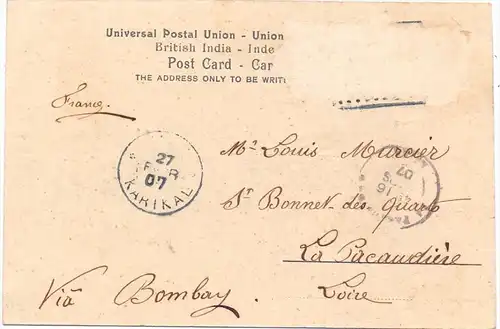 Universal Postal Union - Union
British India - Inde
Post Card - Car
THE ADDRESS ONLY TO BE WRIT
France
Mr Louis Murcier
27
07
KARIKAL
07
16
St Bonnet-des-Quarts
La Pacaudière
Loire
Via Bombay.